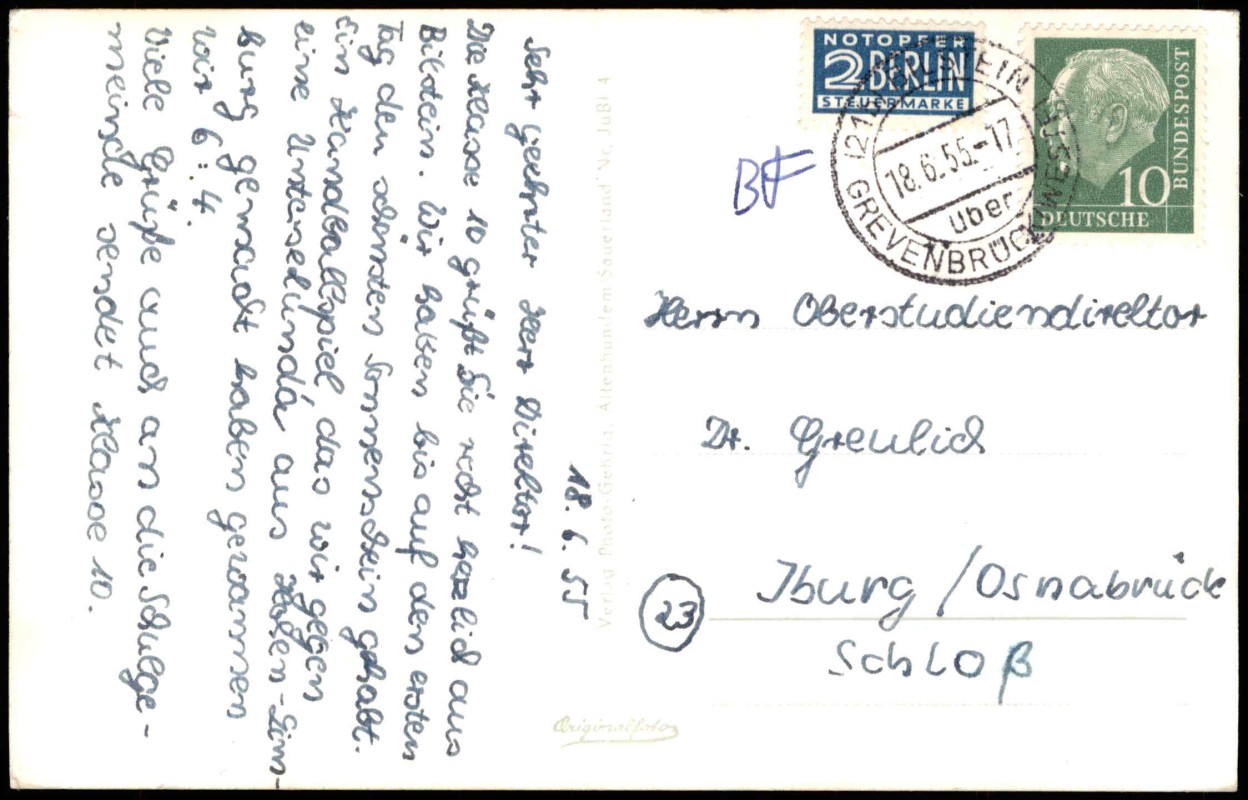 18.6.55
Sehr geehrter Herr Direktor!
Die Klasse 10 grüßt Sie recht herzlich aus
Bilstein. Wir haben bis auf den ersten
Tag den schönsten Sonnenschein gehabt.
Ein Handballspiel, das wir gegen
eine Untersekunda aus Hohen-Lim-
burg gemacht haben gewannen
wir 6:4.
Viele Grüße auch an die Schulge-
meinde sendet Klasse 10.
Verlag Photo-Gehrig, Altenhundem Sauerland Nr. JuBi 4
Originalfoto
NOTOPFER
2 BERLIN
STEUERMARKE
DEUTSCHE
BUNDESPOST
10
BILSTEIN
18.6.55.-17
über
GREVENBRÜCK
BF
Herrn Oberstudiendirektor
Dr. Greulich
(23) Iburg/Osnabrück
Schloß